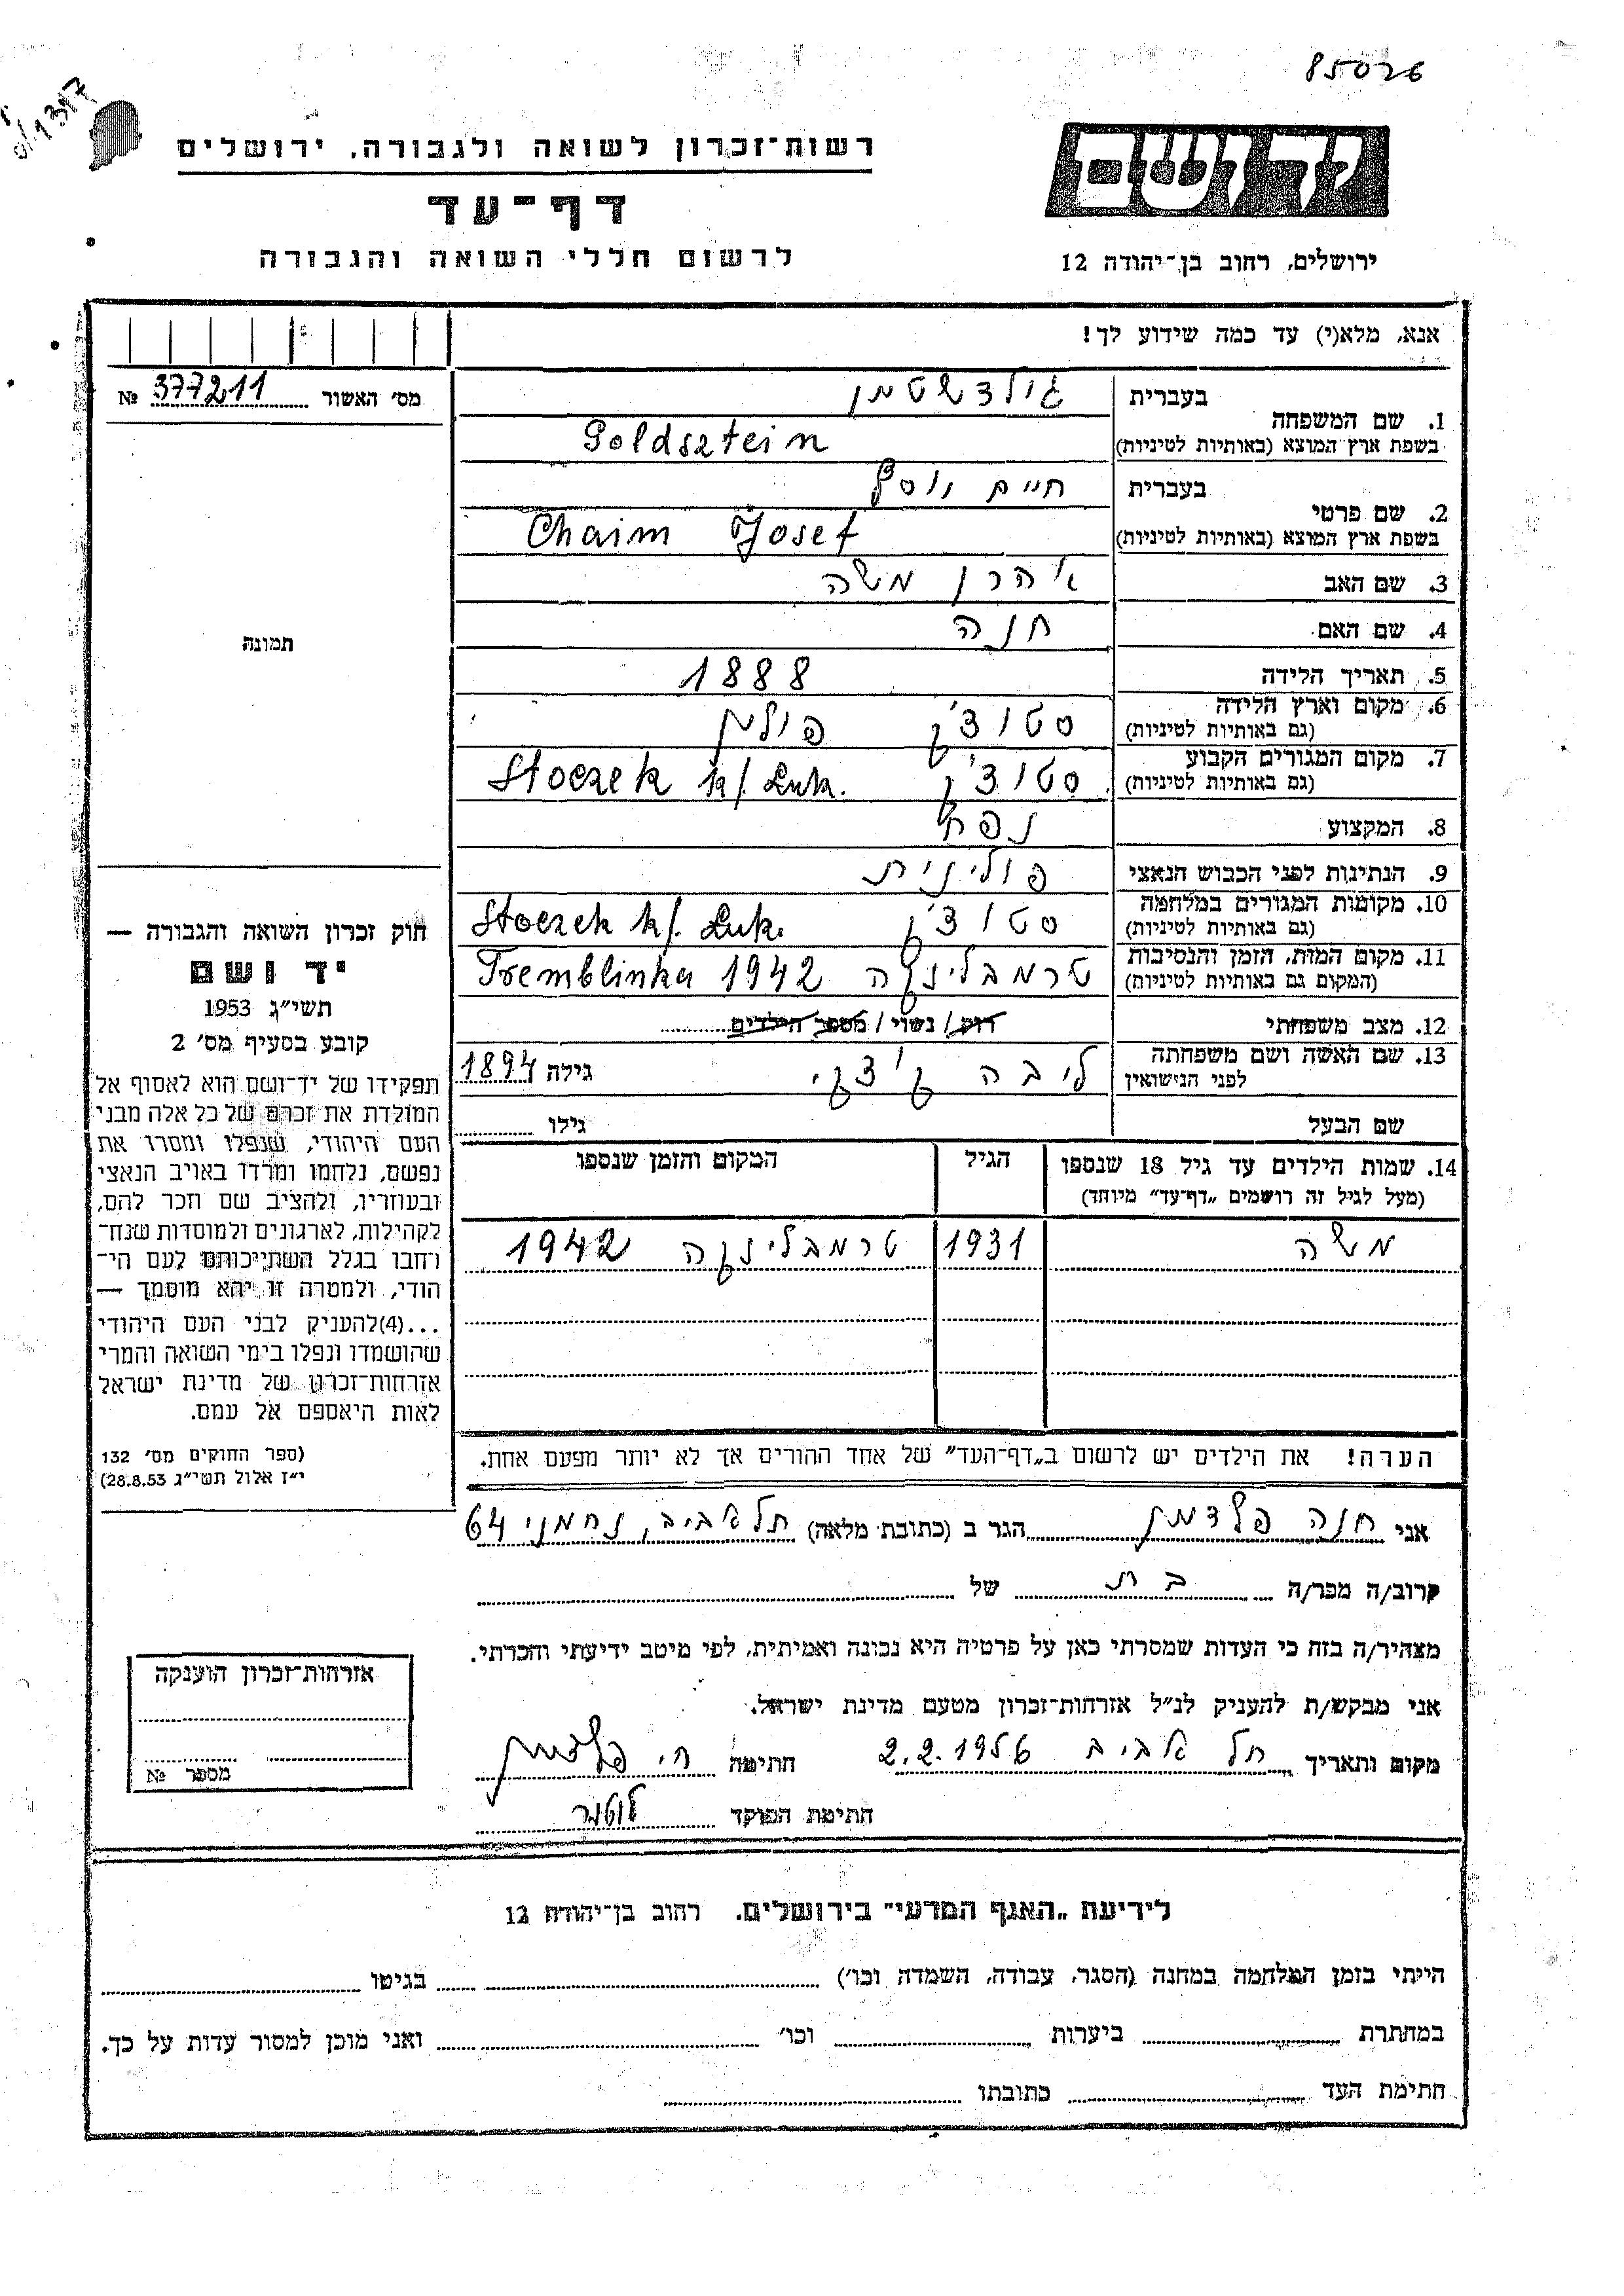 85026
רשות־זכרון לשואה ולגבורה, ירושלים
יד ושם
דף־עד
לרשום חללי השואה והגבורה
ירושלים, רחוב בן־יהודה 12
אנא, מלא(י) עד כמה שידוע לך!
מס׳ האשור 377211 №
1. שם המשפחה
בעברית גולדשטין
בשפת ארץ המוצא (באותיות לטיניות) Goldsztein
2. שם פרטי
בעברית חיים יוסף
בשפת ארץ המוצא (באותיות לטיניות) Chaim Josef
3. שם האב אהרן משה
4. שם האם חנה
5. תאריך הלידה 1888
6. מקום וארץ הלידה סטוצ׳ק פולין
(גם באותיות לטיניות)
7. מקום המגורים הקבוע סטוצ׳ק Stoczek k/. Łuk.
(גם באותיות לטיניות)
8. המקצוע נפח
9. הנתינות לפני הכבוש הנאצי פולינית
10. מקומות המגורים במלחמה סטוצ׳ק Stoczek k/. Łuk.
(גם באותיות לטיניות)
11. מקום המות, הזמן והנסיבות טרמבלינקה Tremblinka 1942
(המקום גם באותיות לטיניות)
12. מצב משפחתי רוק / נשוי / מספר הילדים
13. שם האשה ושם משפחתה ליבה גילה 1894
לפני הנישואין
שם הבעל גילו
14. שמות הילדים עד גיל 18 שנספו הגיל המקום והזמן שנספו
(מעל לגיל זה רושמים „דף־עד” מיוחד)
משה 1931 טרמבלינקה 1942
הערה! את הילדים יש לרשום ב„דף־העד” של אחד ההורים אך לא יותר מפעם אחת.
תמונה
חוק זכרון השואה והגבורה —
יד ושם
תשי״ג 1953
קובע בסעיף מס׳ 2
תפקידו של יד־ושם הוא לאסוף אל
המולדת את זכרם של כל אלה מבני
העם היהודי, שנפלו ומסרו את
נפשם, נלחמו ומרדו באויב הנאצי
ובעוזריו, ולהציב שם וזכר להם,
לקהילות, לארגונים ולמוסדות שנח־
רחבו בגלל השתייכותם לעם הי־
הודי, ולמטרה זו יהא מוסמך —
...(4)להעניק לבני העם היהודי
שהושמדו ונפלו בימי השואה והמרי
אזרחות־זכרון של מדינת ישראל
לאות היאספם אל עמם.
(ספר החוקים מס׳ 132
י״ז אלול תשי״ג 28.8.53)
אני חנה פלדמן הגר ב (כתובת מלאה) תל אביב, נחמני 64
קרוב/ה מכר/ה בת של
מצהיר/ה בזה כי העדות שמסרתי כאן על פרטיה היא נכונה ואמיתית, לפי מיטב ידיעתי והכרתי.
אני מבקש/ת להעניק לנ״ל אזרחות־זכרון מטעם מדינת ישראל.
מקום ותאריך תל אביב 2.2.1956 חתימה ח. פלדמן
חתימת הפוקד
אזרחות־זכרון הוענקה
מספר №
לידיעת „האגף המדעי” בירושלים. רחוב בן־יהודה 12
הייתי בזמן המלחמה במחנה (הסגר, עבודה, השמדה וכו׳) בגיטו
במחתרת ביערות וכו׳ ואני מוכן למסור עדות על כך.
חתימת העד כתובתו